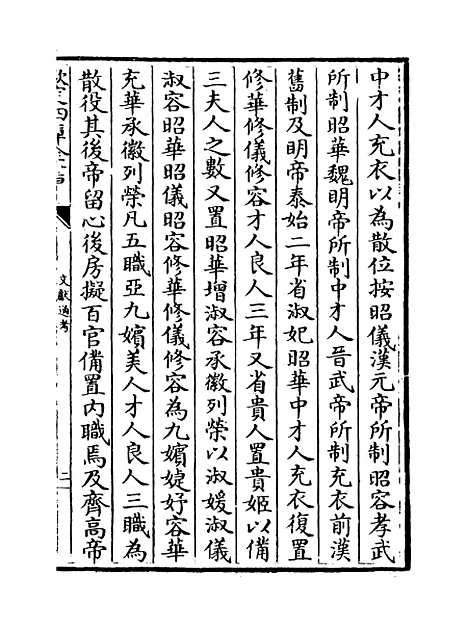 中才人充衣以為散位按昭儀漢元帝所制昭容孝武
所制昭華魏明帝所制中才人晉武帝所制充衣前漢
舊制及明帝泰始二年省淑妃昭華中才人充衣復置
修華修儀修容才人良人三年又省貴人置貴姬以備
三夫人之數又置昭華增淑容承徽列榮以淑媛淑儀
淑容昭華昭儀昭容修華修儀修容為九嬪婕妤容華
充華承徽列榮凡五職亞九嬪美人才人良人三職為
散役其後帝留心後房擬百官備置内職焉及齊高帝
欽定四庫全書
文獻通考
二